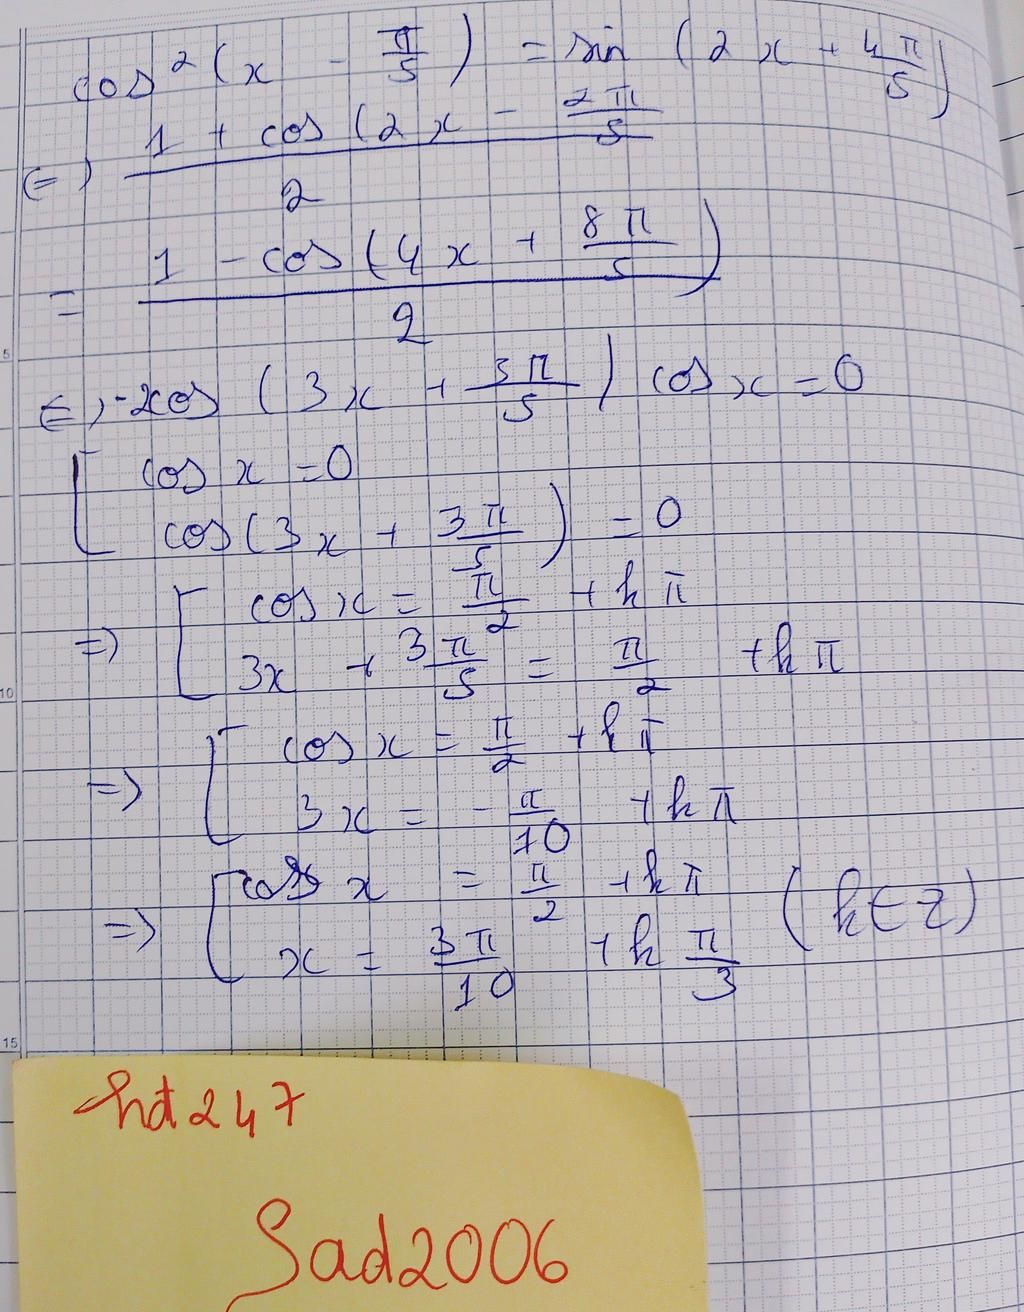 cos²(x - π/5) = sin(2x + 4π/5)
⇔ (1 + cos(2x - 2π/5)/2
= (1 - cos(4x + 8π/5))/2
⇔ -2cos(3x + 3π/5) cos x = 0
[ cos x = 0
cos(3x + 3π/5) = 0
⇒ [ cos x = π/2 + kπ
3x + 3π/5 = π/2 + kπ
⇒ [ cos x = π/2 + kπ
3x = -π/10 + kπ
⇒ [ cos x = π/2 + kπ (k ∈ Z)
x = 3π/10 + k π/3
5
10
15
hd247
Sad2006